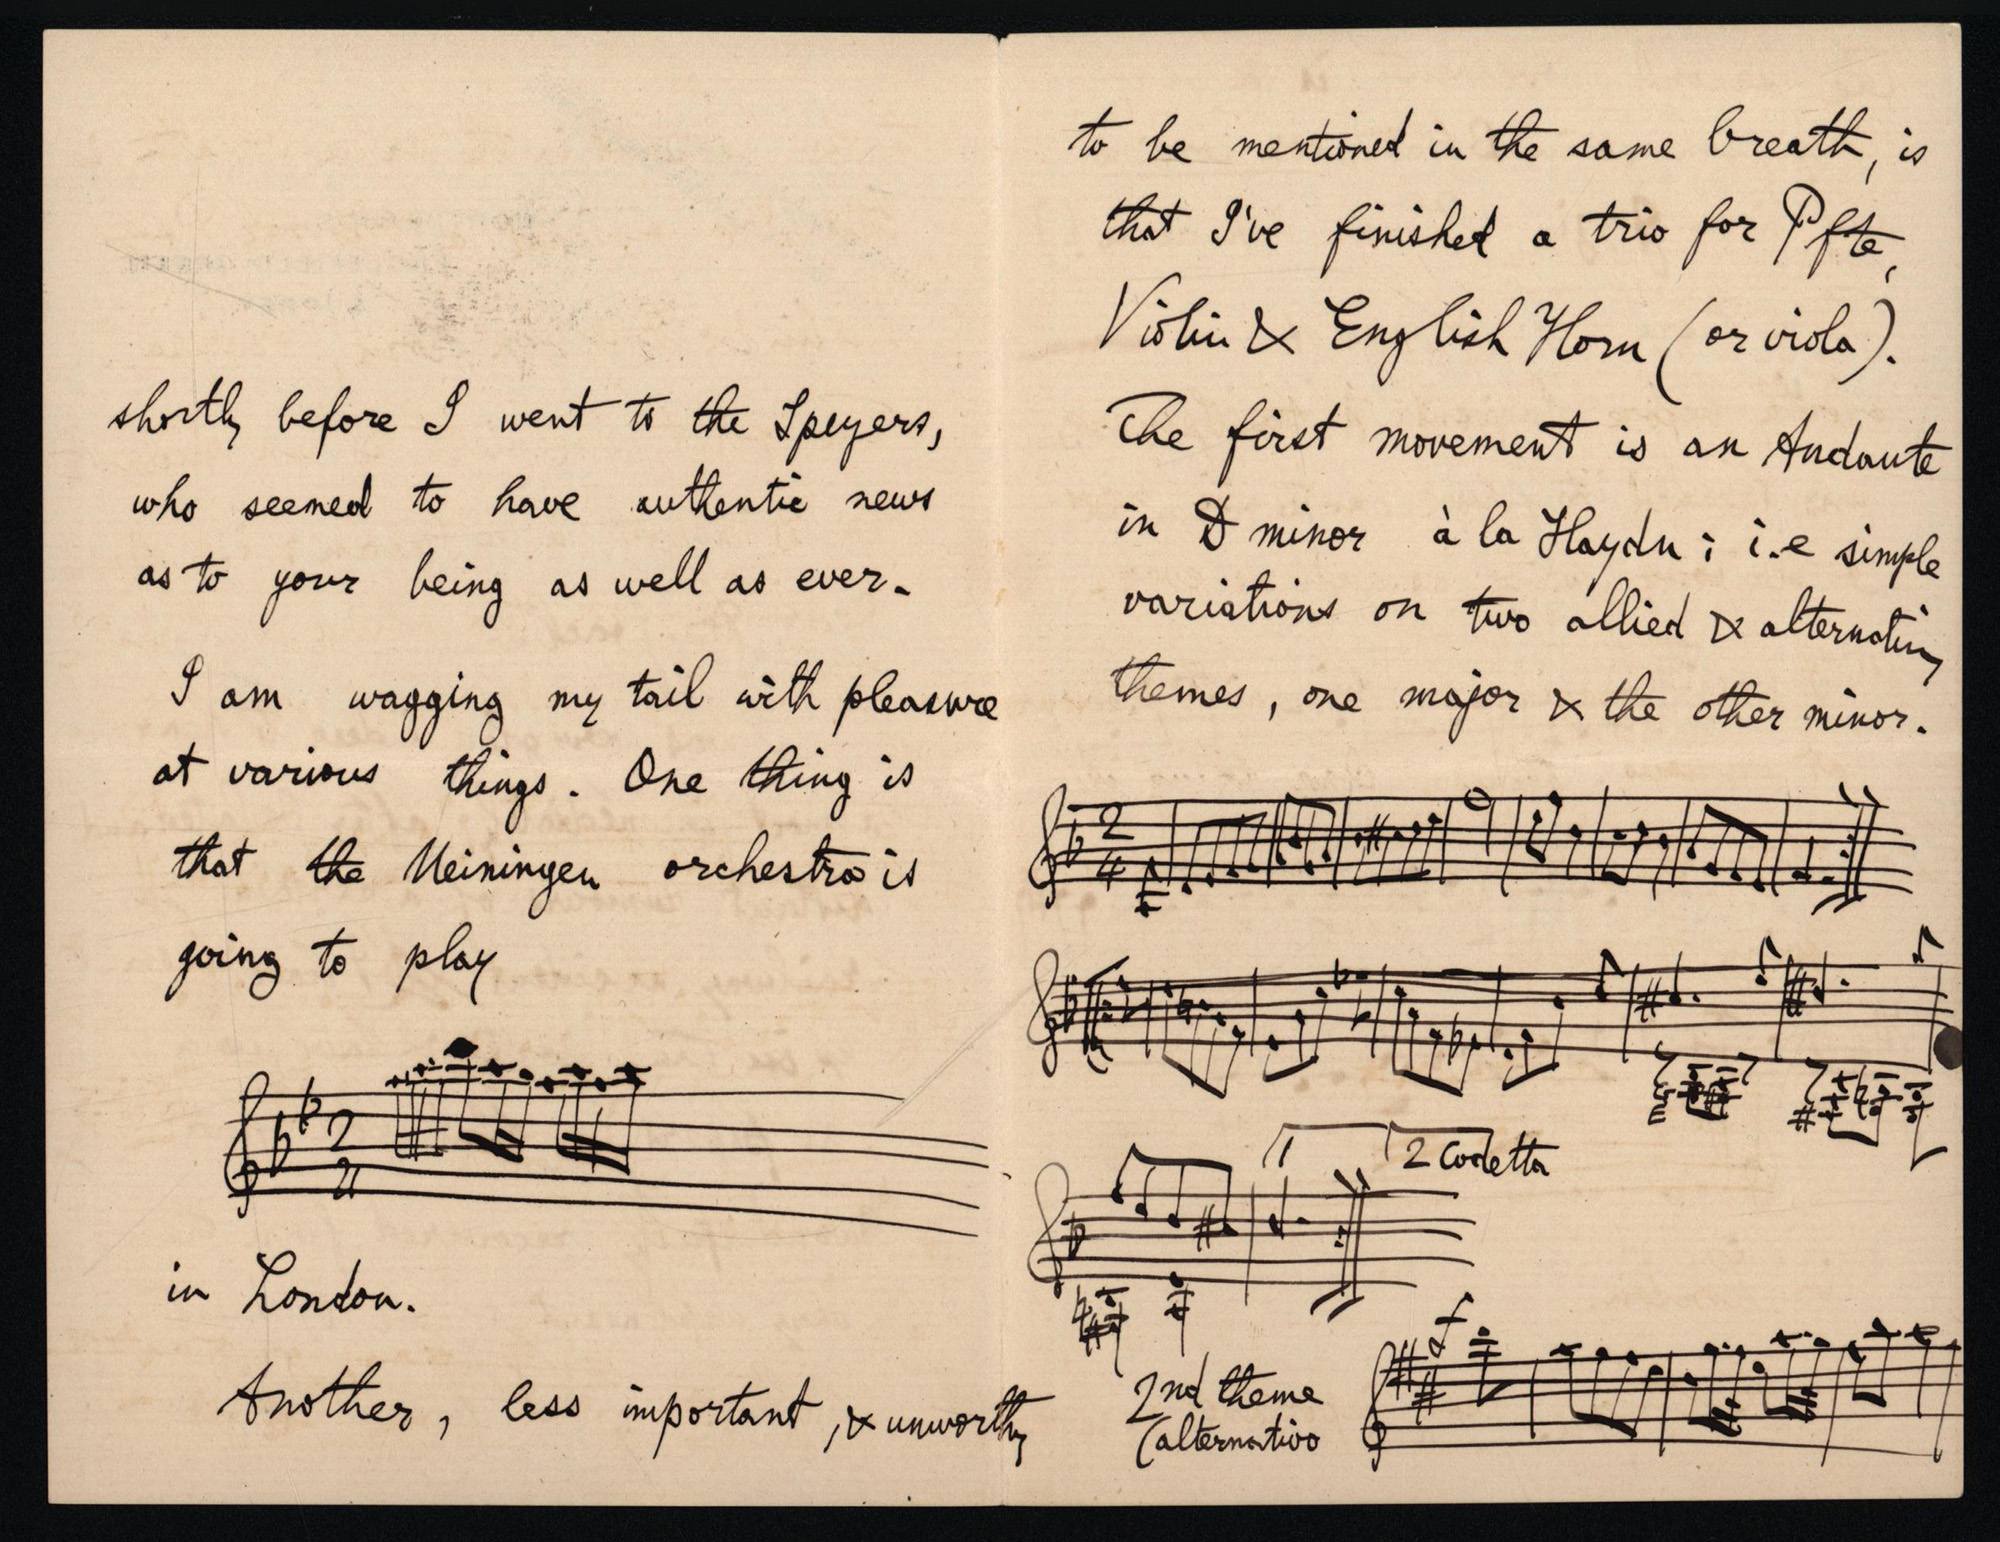 shortly before I went to the Speyers,
who seemed to have authentic news
as to your being as well as ever.
I am wagging my tail with pleasure
at various things. One thing is
that the Meiningen orchestra is
going to play
2
2
in London.
Another, less important, & unworthy
to be mentioned in the same breath, is
that I've finished a trio for Pfte,
Violin & English Horn (or viola).
The first movement is an Andante
in D minor à la Haydn; i.e simple
variations on two allied & alternating
themes, one major & the other minor.
2
4
1 2 Codetta
f
2nd theme
(alternativo